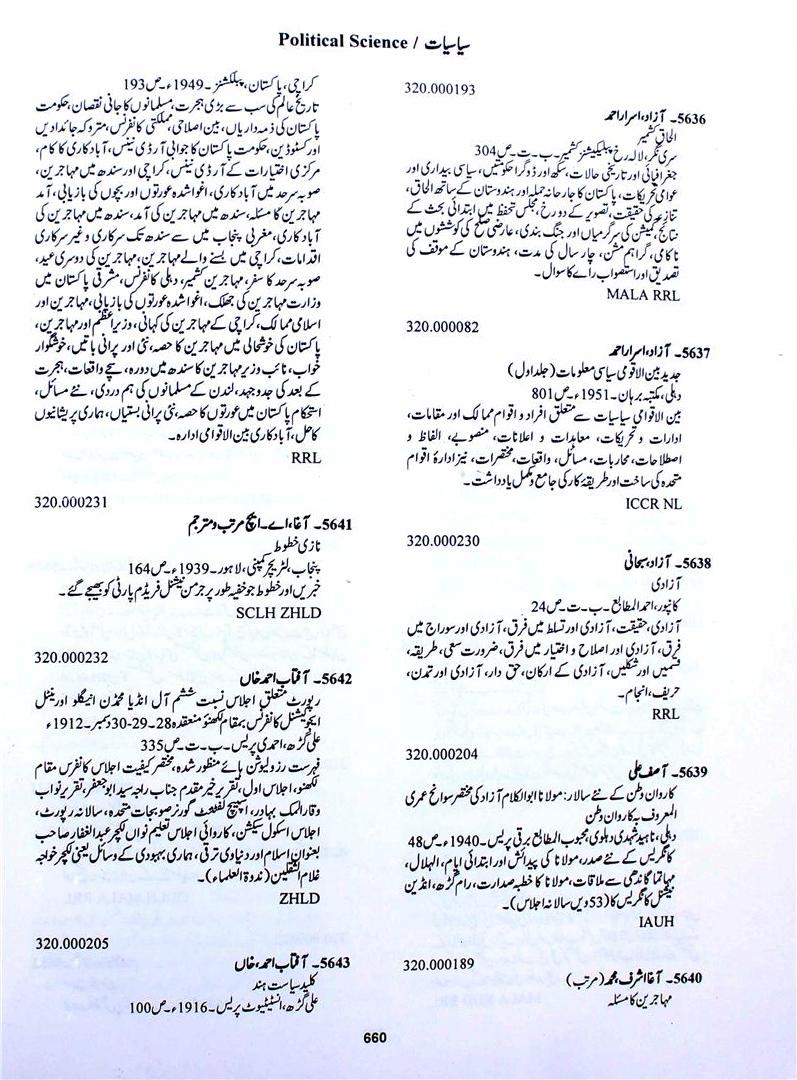 Political Science / سیاسیات
320.000193
5636۔ آزاد، اسرار احمد
الحاق کشمیر
سری نگر، لالہ رخ پبلیکیشنز کشمیر۔ ب۔ ت۔ ص304
جغرافیائی اور تاریخی حالات، سکھ اور ڈوگرا حکومتیں، سیاسی بیداری اور
عوامی تحریکات، پاکستان کا جارحانہ حملہ اور ہندوستان کے ساتھ الحاق،
تنازعہ کی حقیقت، تصویر کے دو رخ، مجلس تحفظ میں ابتدائی بحث کے
نتائج، کمیشن کی سرگرمیاں اور جنگ بندی، عارضی صلح کی کوششوں میں
ناکامی، گراہم مشن، چار سال کی مدت، ہندوستان کے موقف کی
تصدیق اور استصواب رائے کا سوال۔
MALA RRL
320.000082
5637۔ آزاد، اسرار احمد
جدید بین الاقوامی سیاسی معلومات (جلد اول)
دہلی، مکتبہ برہان۔ 1951ء۔ ص801
بین الاقوامی سیاسیات سے متعلق افراد و اقوام ممالک اور مقامات،
ادارات و تحریکات، معاہدات و اعلانات، منصوبے، الفاظ و
اصطلاحات، محاربات، مسائل، واقعات، مختصرات، نیز ادارۂ اقوام
متحدہ کی ساخت اور طریقۂ کار کی جامع و مکمل یادداشت۔
ICCR NL
320.000230
5638۔ آزاد، سبحانی
آزادی
کانپور، احمد المطابع۔ ب۔ ت۔ ص24
آزادی، حقیقت، آزادی اور تسلط میں فرق، آزادی اور سوراج میں
فرق، آزادی اور اصلاح و اختیار میں فرق، ضرورت سعی، طریقہ،
قسمیں اور شکلیں، آزادی کے ارکان، حق دار، آزادی اور تمدن،
حریف، انجام۔
RRL
320.000204
5639۔ آصف علی
کاروان وطن کے نئے سالار: مولانا ابوالکلام آزاد کی مختصر سوانح عمری
المعروف بہ کاروان وطن
دہلی، ناہید شہدی دہلوی، محبوب المطابع برقی پریس۔ 1940ء۔ ص48
کانگریس کے نئے صدر، مولانا کی پیدائش اور ابتدائی ایام، الہلال،
مہاتما گاندھی سے ملاقات، مولانا کا خطبہ صدارت، رام گڑھ، انڈین
نیشنل کانگریس کا (53ویں سالانہ اجلاس)۔
IAUH
320.000189
5640۔ آغا اشرف، محمد (مرتب)
مہاجرین کا مسئلہ
کراچی، پاکستان، پبلکیشنز۔ 1949ء۔ ص193
تاریخ عالم کی سب سے بڑی ہجرت، مسلمانوں کا جانی نقصان، حکومت
پاکستان کی ذمہ داریاں، بین اصلاحی، مملکتی کانفرنس، متروکہ جائدادیں
اور کسٹوڈین، حکومت پاکستان کا جوابی آرڈی نینس، آباد کاری کا کام،
مرکزی اختیارات کے آرڈی نینس، کراچی اور سندھ میں مہاجرین،
صوبہ سرحد میں آباد کاری، اغوا شدہ عورتوں اور بچوں کی بازیابی، آمد
مہاجرین کا مسئلہ، سندھ میں مہاجرین کی آمد، سندھ میں مہاجرین کی
آباد کاری، مغربی پنجاب میں سے سندھ تک سرکاری و غیر سرکاری
اقدامات، کراچی میں بسنے والے مہاجرین، مہاجرین کی دوسری عید،
صوبہ سرحد کا سفر، مہاجرین کشمیر، دہلی کانفرنس، مشرقی پاکستان میں
وزارت مہاجرین کی جھلک، اغوا شدہ عورتوں کی بازیابی، مہاجرین اور
اسلامی ممالک، کراچی کے مہاجرین کی کہانی، وزیر اعظم اور مہاجرین،
پاکستان کی خوشحالی میں مہاجرین کا حصہ، نئی اور پرانی باتیں، خوشگوار
خواب، نائب وزیر مہاجرین کا سندھ میں دورہ، سچے واقعات، ہجرت
کے بعد کی جدوجہد، لندن کے مسلمانوں کی ہم دردی، نئے مسائل،
استحکام پاکستان میں عورتوں کا حصہ، نئی پرانی بستیاں، ہماری پریشانیوں
کا حل، آباد کاری بین الاقوامی ادارہ۔
RRL
320.000231
5641۔ آغا، اے۔ ایچ مرتب و مترجم
نازی خطوط
پنجاب، لٹریچر کمپنی، لاہور۔ 1939ء۔ ص164
خبریں اور خطوط جو خفیہ طور پر جرمن نیشنل فریڈم پارٹی کو بھیجے گئے۔
SCLH ZHLD
320.000232
5642۔ آفتاب احمد خاں
رپورٹ متعلق اجلاس نسبت ششم آل انڈیا محمڈن اینگلو اورینٹل
ایجوکیشنل کانفرنس بمقام لکھنؤ منعقدہ 28-29-30 دسمبر۔ 1912ء
علی گڑھ، احمدی پریس۔ ب۔ ت۔ ص335
فہرست رزولیوشن ہائے منظور شدہ، مختصر کیفیت اجلاس کانفرنس مقام
لکھنو، اجلاس اول، تقریر خیر مقدم جناب راجہ سید ابو جعفر، تقریر نواب
وقار الملک بہادر، اسپیچ لفٹننٹ گورنر صوبجات متحدہ، سالانہ رپورٹ،
اجلاس اسکول سیکشن، کاروائی اجلاس تعلیم نواں لکچر عبدالغفار صاحب
بعنوان اسلام اور دنیاوی ترقی، ہماری بہبودی کے وسائل یعنی لکچر خواجہ
غلام الثقلین (ندوۃ العلماء)۔
ZHLD
320.000205
5643۔ آفتاب احمد، خاں
کلید سیاست ہند
علی گڑھ، انسٹیٹیوٹ پریس۔ 1916ء۔ ص100
660